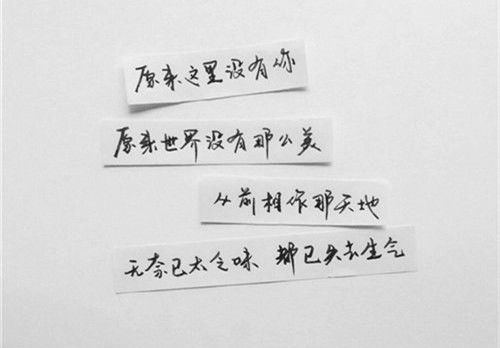 原来这里没有你
原来世界没有那么美
从前相作那天地
无奈已太乏味 都已失去生气